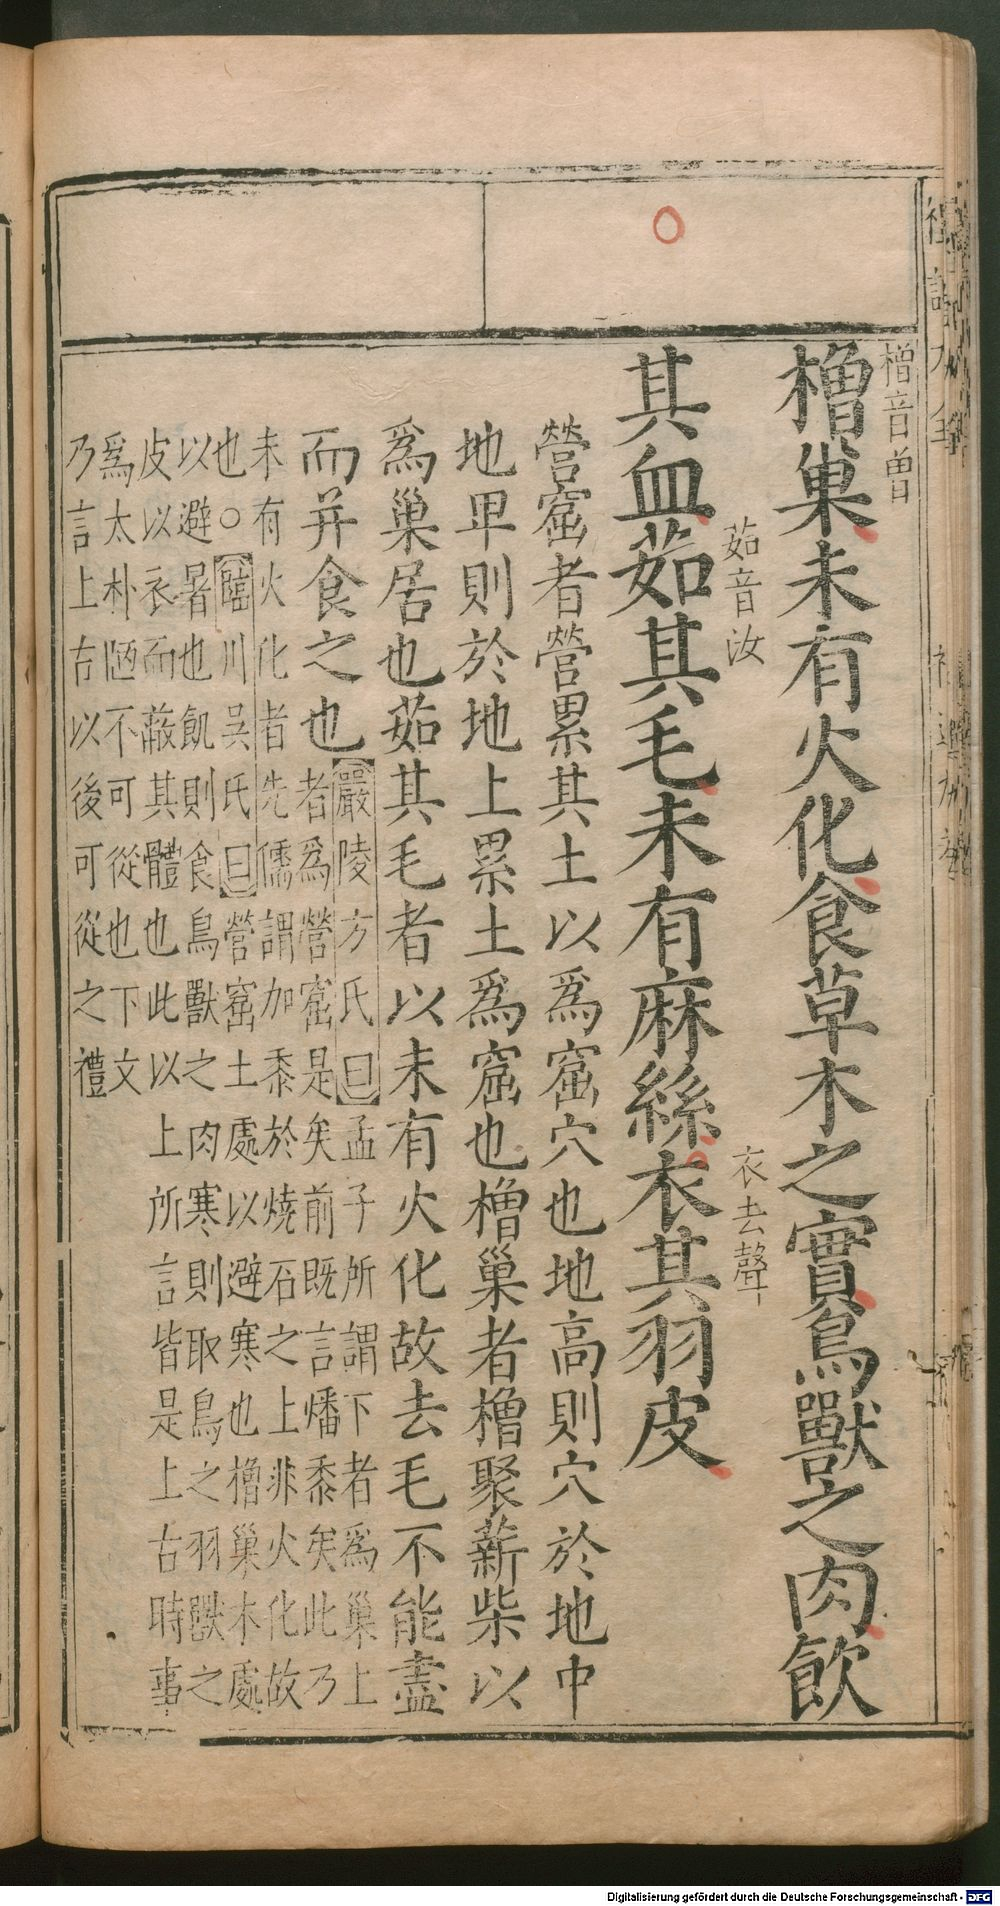 橧音曾
橧巢未有火化食草木之實鳥獸之肉飲
茹音汝
衣去聲
其血茹其毛未有麻絲衣其羽皮
營窟者營累其土以爲窟穴也地高則穴於地中
地卑則於地上累土爲窟也橧巢者橧聚薪柴以
爲巢居也茹其毛者以未有火化故去毛不能盡
而并食之也
嚴陵方氏曰孟子所謂下者爲巢上
者爲營窟是矣前既言燔黍矣此乃
未有火化者先儒謂加黍於燒石之上非火化故
也○臨川吳氏曰營窟土處以避寒也橧巢木處
以避暑也飢則食鳥獸之肉寒則取鳥之羽獸之
皮以衣而蔽其體也此以上所言皆是上古時事
爲太朴陋不可從也下文
乃言上古以後可從之禮
Digitalisierung gefördert durch die Deutsche Forschungsgemeinschaft - DFG